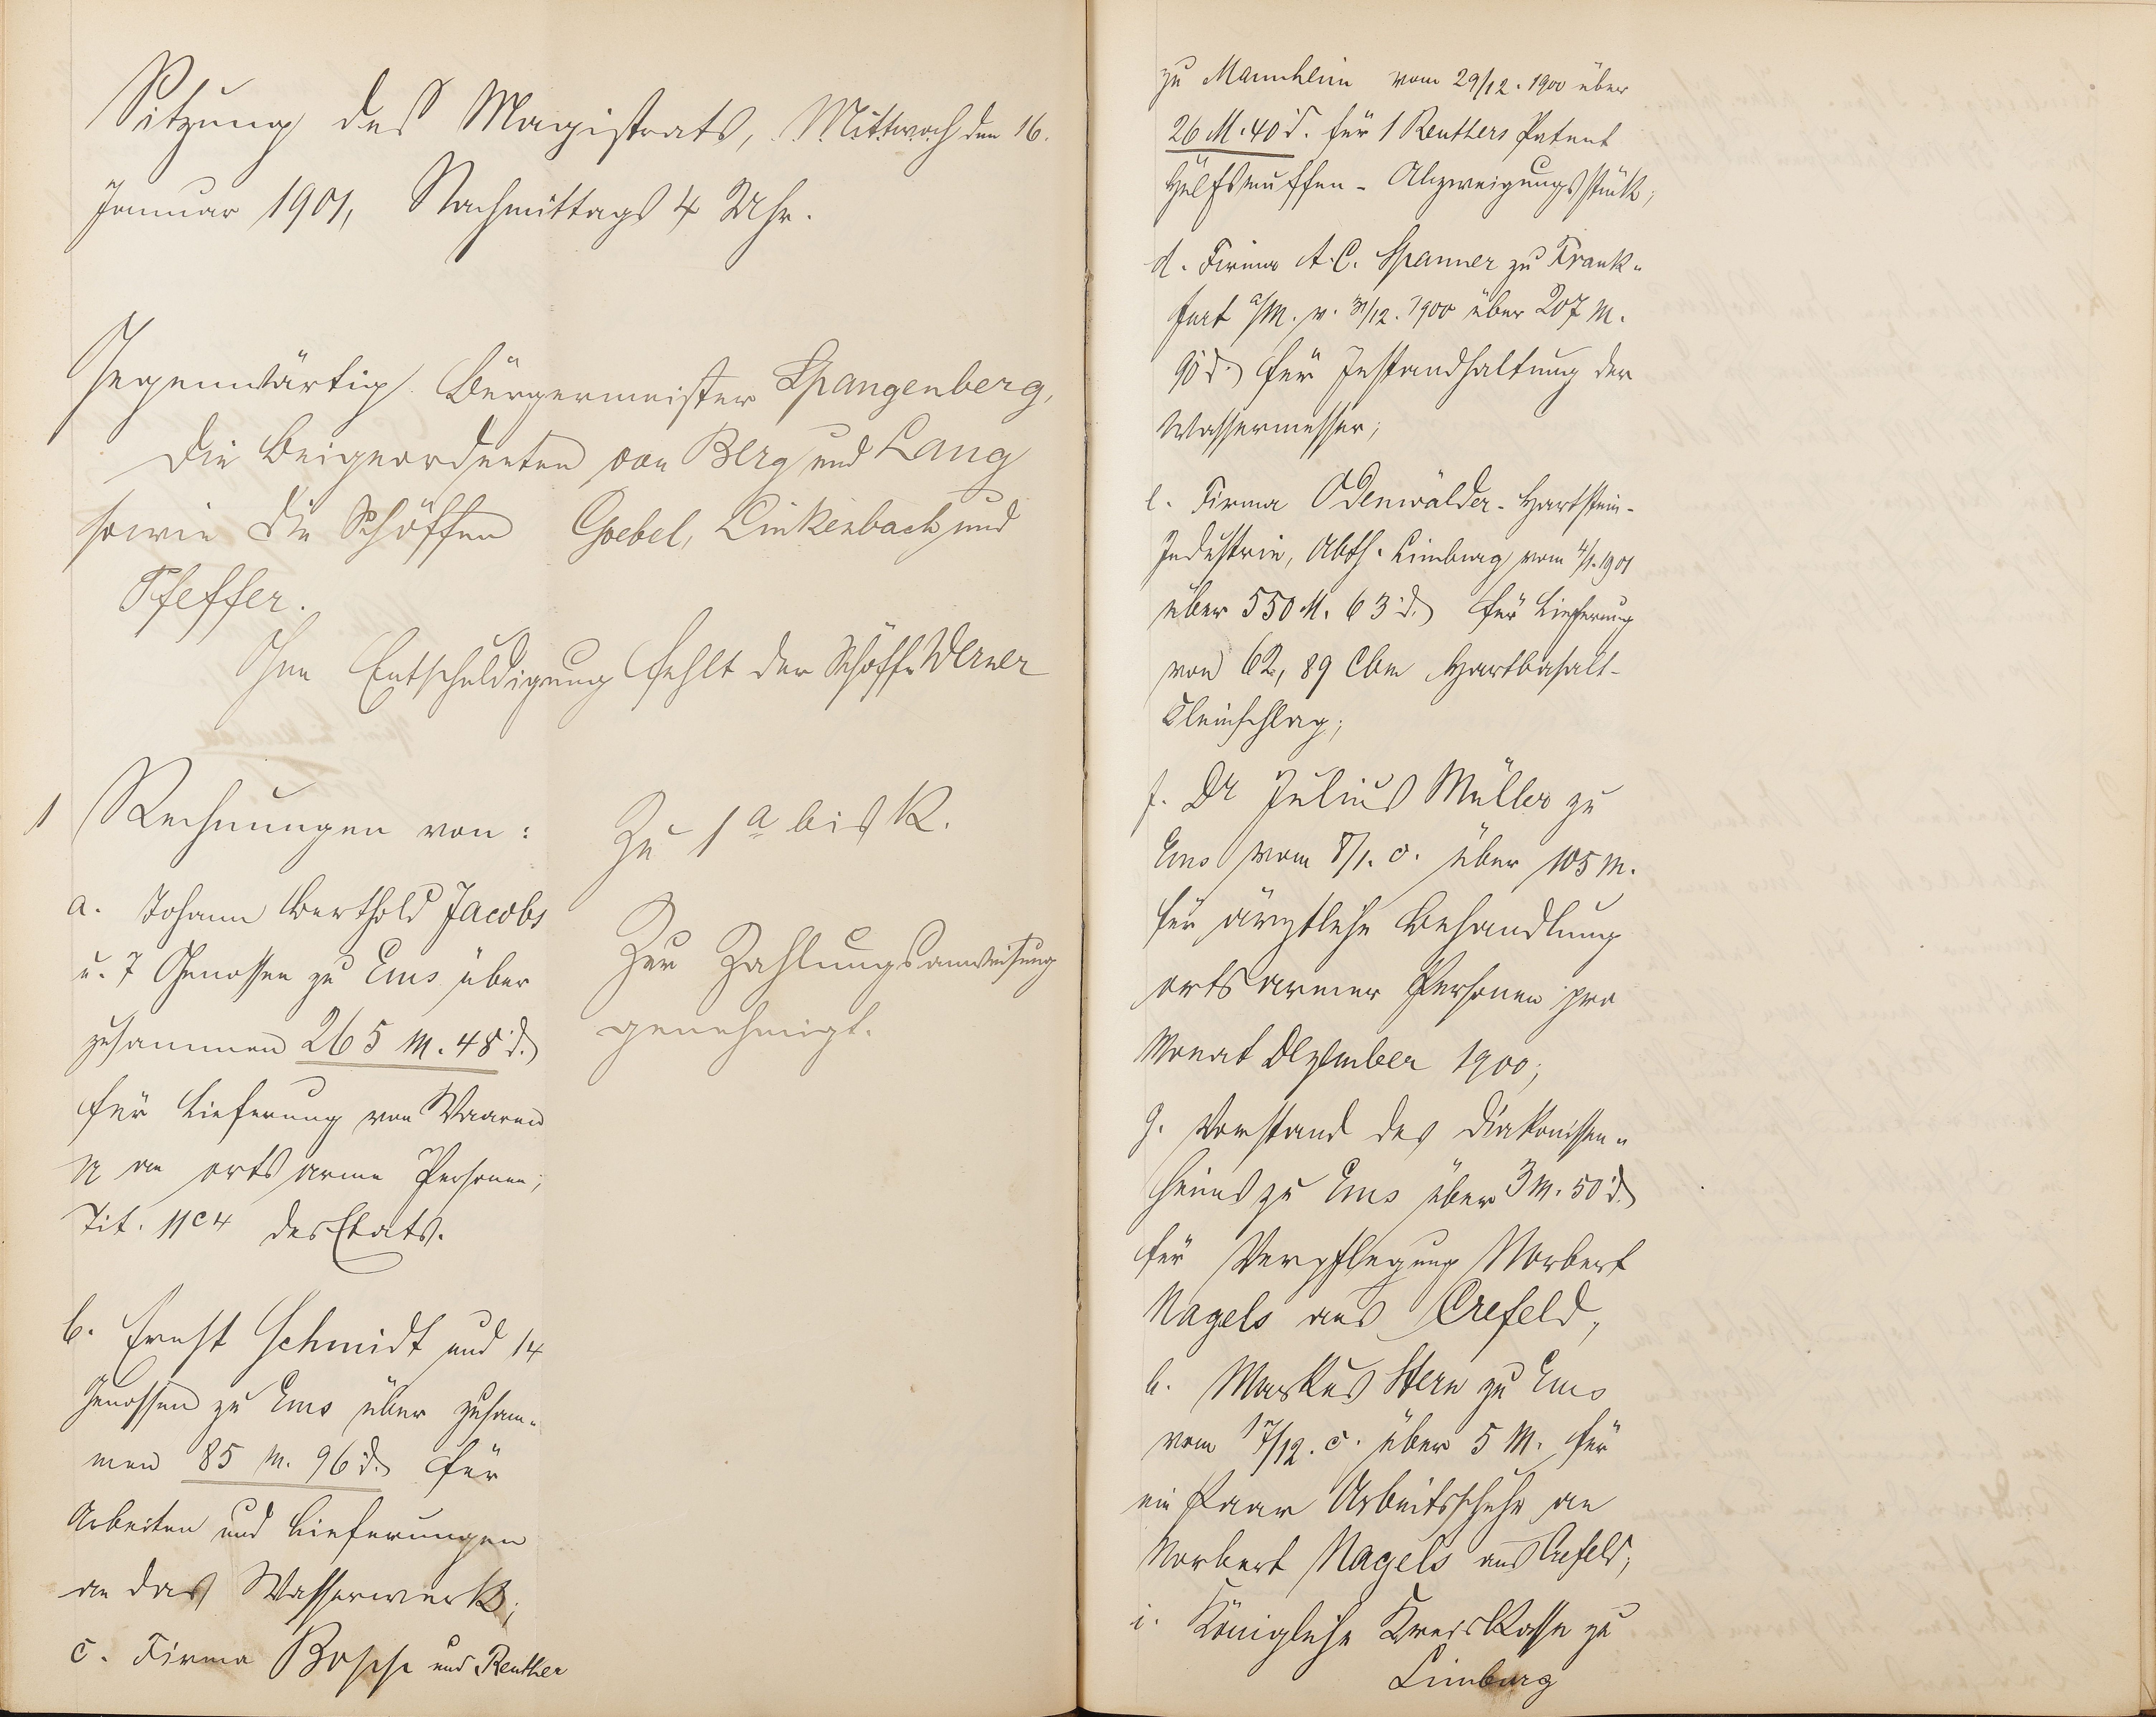 Sitzung des Magistrats, Mittwoch den 16.
Januar 1901, Nachmittags 4 Uhr.
Gegenwärtig Bürgermeister Spangenberg,
die Beigeordneten von Berg und Lang
sowie die Schöffen Goebel, Linkenbach und
Pfeffer.
Ohne Entschuldigung fehlt der Schöffe Werner
1 Rechnungen von:
a. Johann Berthold Jacobs
u. 7 Genossen zu Ems über
zusammen 265 M. 48 d.
für Lieferung von Waaren
pp an ortsarme Personen;
Tit. 11 c 4 des Etats.
b. Ernst Schmidt und 14
Genossen zu Ems über zusam-
men 85 M. 96 d. für
Arbeiten und Lieferungen
an das Wasserwerk;
c. Firma Bopp und Reuther
Zu 1 a bis k.
Zur Zahlungsanweisung
genehmigt.
zu Mannheim vom 29/12. 1900 über
26 M. 40 d. für 1 Reuthers Patent
Hülfsmuffen-Abzweigungsstück;
d. Firma A. C. Spanner zu Frank-
furt a/M. v. 31/12. 1900 über 207 M.
90 d. für Instandhaltung der
Wassermesser;
e. Firma Odenwälder-Hartstein-
Industrie, Abth. Limburg vom 4/1. 1901
über 550 M. 63 d. für Lieferung
von 62,89 Cbm Hartbasalt-
Kleinschlag;
f. Dr Julius Müller zu
Ems vom 8/1. c. über 105 M.
für ärztliche Behandlung
ortsarmer Personen pro
Monat Dezember 1900;
g. Vorstand des Diakonissen-
heims zu Ems über 3 M. 50 d.
für Verpflegung Norbert
Nagels aus Crefeld;
h. Markus Stern zu Ems
vom 17/12. c. über 5 M. für
ein Paar Arbeitsschuhe an
Norbert Nagels aus Crefeld;
i. Königliche Kreiskasse zu
Limburg